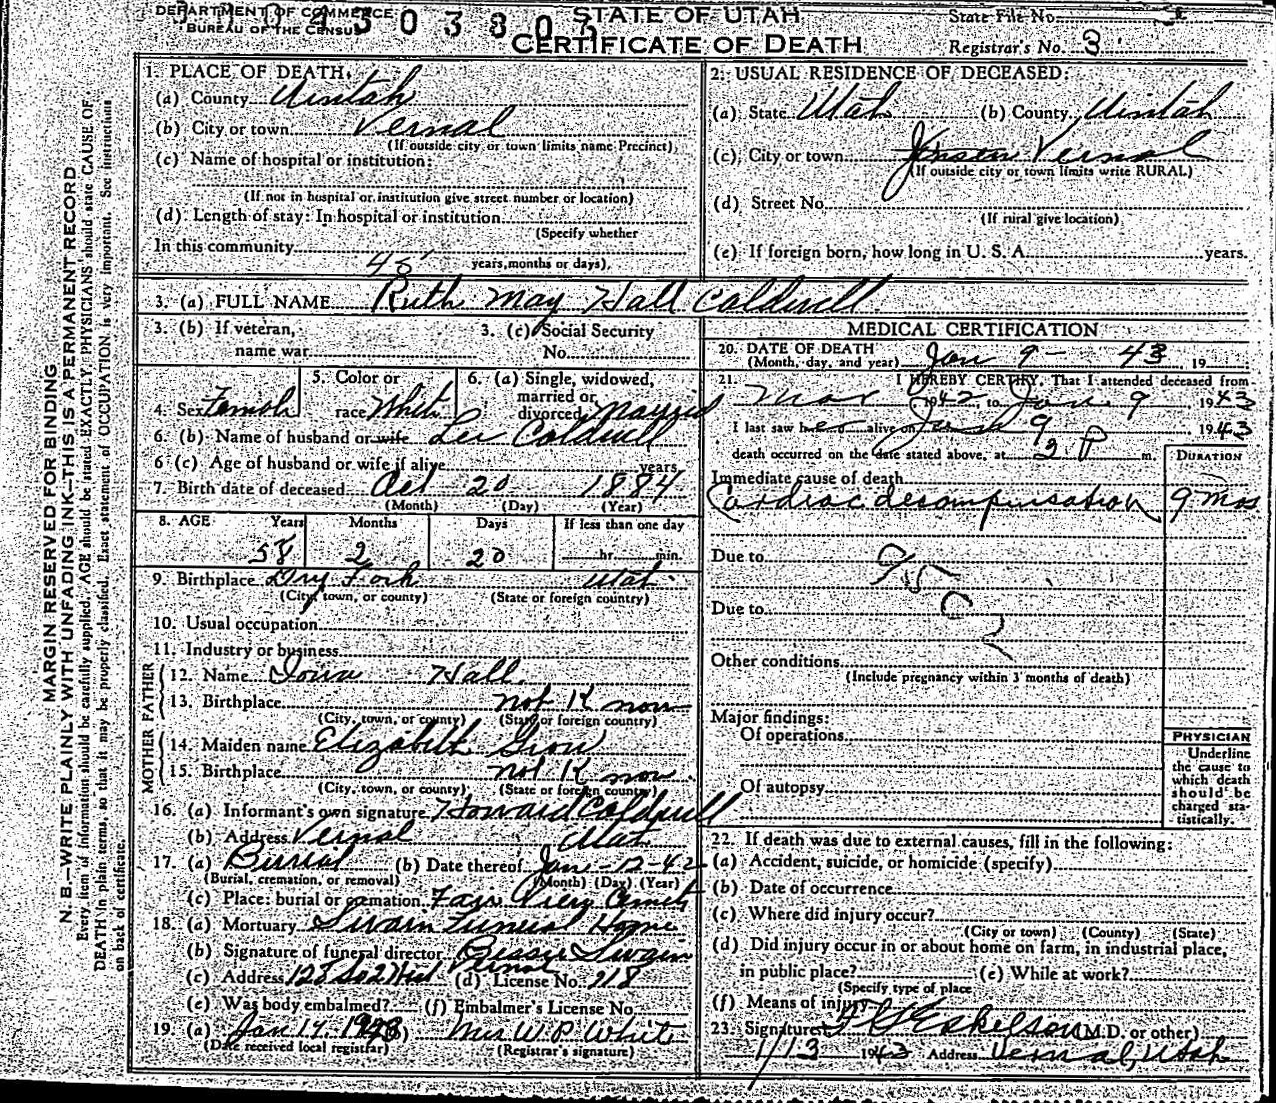 DEPARTMENT OF COMMERCE
BUREAU OF THE CENSUS
STATE OF UTAH
CERTIFICATE OF DEATH
State File No.
Registrar's No. 3
MARGIN RESERVED FOR BINDING
N. B.—WRITE PLAINLY WITH UNFADING INK—THIS IS A PERMANENT RECORD
Every item of information should be carefully supplied. AGE should be stated EXACTLY. PHYSICIANS should state CAUSE OF
DEATH in plain terms, so that it may be properly classified. Exact statement of OCCUPATION is very important. See instructions
on back of certificate.
1. PLACE OF DEATH,
(a) County Uintah
(b) City or town Vernal
(If outside city or town limits name Precinct)
(c) Name of hospital or institution:
(If not in hospital or institution give street number or location)
(d) Length of stay: In hospital or institution
(Specify whether
In this community
years, months or days)
2. USUAL RESIDENCE OF DECEASED:
(a) State Utah (b) County Uintah
(c) City or town Jensen Vernal
(If outside city or town limits write RURAL)
(d) Street No.
(If rural give location)
(e) If foreign born, how long in U. S. A. years.
3. (a) FULL NAME Ruth May Hall Caldwell
3. (b) If veteran,
name war
3. (c) Social Security
No.
4. Sex Female
5. Color or
race White
6. (a) Single, widowed,
married or
divorced Married
6. (b) Name of husband or wife Caldwell
6 (c) Age of husband or wife if alive years
7. Birth date of deceased Oct 20 1884
(Month) (Day) (Year)
8. AGE Years Months Days If less than one day
58 2 20 hr. min.
9. Birthplace Dry Fork Utah
(City, town, or county) (State or foreign country)
10. Usual occupation
11. Industry or business
FATHER
12. Name Hall
13. Birthplace not K now
(City, town, or county) (State or foreign country)
MOTHER
14. Maiden name Elizabeth
15. Birthplace not K now
(City, town, or county) (State or foreign country)
16. (a) Informant's own signature Howard Caldwell
(b) Address Vernal Utah
17. (a) Burial (b) Date thereof Jan-12-42
(Burial, cremation, or removal) (Month) (Day) (Year)
(c) Place: burial or cremation Fair View Cemety
18. (a) Mortuary Swain Funeral Home
(b) Signature of funeral director Swain
(c) Address Vernal (d) License No. 218
(e) Was body embalmed? (f) Embalmer's License No.
19. (a) Jan 17. 1943 (b) Mrs W. P. White
(Date received local registrar) (Registrar's signature)
MEDICAL CERTIFICATION
20. DATE OF DEATH
(Month, day, and year) Jan 9 - 43 19
21. I HEREBY CERTIFY, That I attended deceased from
Mar 1942, to Jan 9, 1943
I last saw her alive on 9 1943
death occurred on the date stated above, at 2 P m.
DURATION
Immediate cause of death
Cardiac decompensation 9 mos
Due to
Due to
Other conditions
(Include pregnancy within 3 months of death)
Major findings:
Of operations
Of autopsy
PHYSICIAN
Underline
the cause to
which death
should be
charged sta-
tistically.
22. If death was due to external causes, fill in the following:
(a) Accident, suicide, or homicide (specify)
(b) Date of occurrence
(c) Where did injury occur?
(City or town) (County) (State)
(d) Did injury occur in or about home on farm, in industrial place,
in public place? (e) While at work?
(Specify type of place
(f) Means of injury
23. Signature Eskelson (M.D. or other)
1/13 1943 Address Vernal, Utah